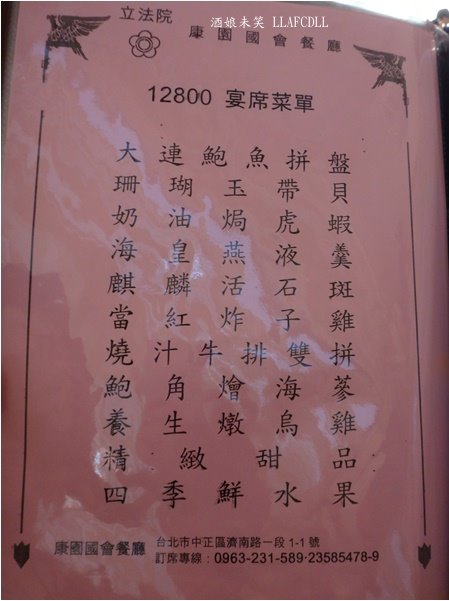 酒娘未笑 LLAFCDLL
立法院
康園國會餐廳
12800 宴席菜單
大連鮑魚拼盤
珊瑚玉帶貝
奶油焗虎蝦
海皇燕液羹
麒麟活石斑
當紅炸子雞
燒汁牛排雙拼
鮑角燴海蔘
養生燉烏雞
精緻甜品
四季鮮水果
康園國會餐廳
台北市中正區濟南路一段1-1號
訂席專線：0963-231-589·23585478-9